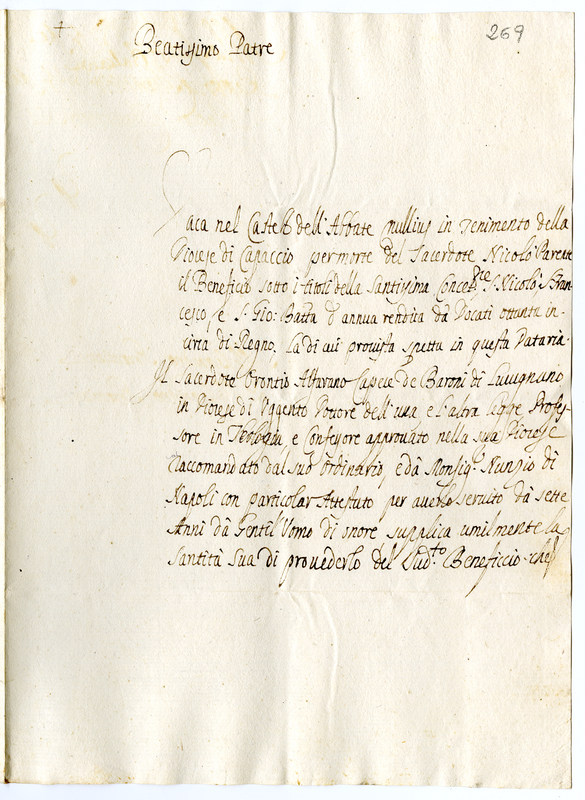 +
269
Beatissimo Patre
Vaca nel Castello dell'Abbate nullius in Tenimento della
Diocese di Capaccio per morte del Sacerdote Nicolò Parente
il Beneficio sotto i titoli della Santissima Concep.ne S. Nicolò S. Fran-
cesco, e S. Gio: Batta d'annua rendita dà Docati ottanta in-
circa di Regno. La di cui provista spetta in questa Dataria.
Il Sacerdote Orontio Alfarano Capece de Baroni di Lucugnano
in Diocese di Uggento Dottore dell'una e l'altra legge Profes-
sore in Teologia e Confessore approvato nella sua Diocese
Raccomandato dal suo Ordinario, e dà Monsig.r Nunzio di
Napoli con particolar Attestato per averlo servito dà sette
Anni dà Gentil Uomo di onore supplica umilmente la
Santità Sua di provederlo del Sud.to Beneficcio che